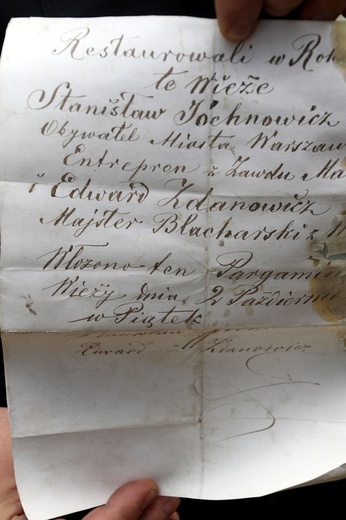 Restaurowali w Rok
te Wieże
Stanisław Jochnowicz
Obywatel Miasta Warszaw
Entrepren z Zawdu Ma
i Edward Zdanowicz
Majster Blacharski z W
Włozono ten Pargamin
Wieży dnia 2 Pazdzierni
w Piątek
Edward Zdanowicz